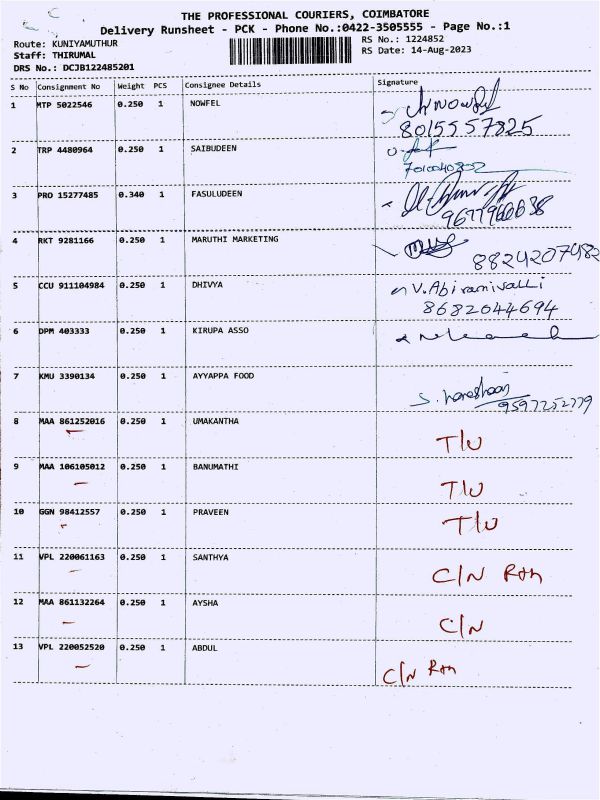 THE PROFESSIONAL COURIERS, COIMBATORE
Delivery Runsheet - PCK - Phone No.:0422-3505555 - Page No.:1
Route: KUNIYAMUTHUR RS No.: 1224852
Staff: THIRUMAL RS Date: 14-Aug-2023
DRS No.: DCJB122485201
S No Consignment No Weight PCS Consignee Details Signature
1 MTP 5022546 0.250 1 NOWFEL
8015557825
2 TRP 4480964 0.250 1 SAIBUDEEN
3 PRO 15277485 0.340 1 FASULUDEEN
4 RKT 9281166 0.250 1 MARUTHI MARKETING
8824207482
5 CCU 911104984 0.250 1 DHIVYA V. Abiramivalli
8682044694
6 DPM 403333 0.250 1 KIRUPA ASSO
7 KMU 3390134 0.250 1 AYYAPPA FOOD
8 MAA 861252016 0.250 1 UMAKANTHA T/U
9 MAA 106105012 0.250 1 BANUMATHI T/U
10 GGN 98412557 0.250 1 PRAVEEN T/U
11 VPL 220061163 0.250 1 SANTHYA C/N Rtn
12 MAA 861132264 0.250 1 AYSHA C/N
13 VPL 220052520 0.250 1 ABDUL C/N Rtn